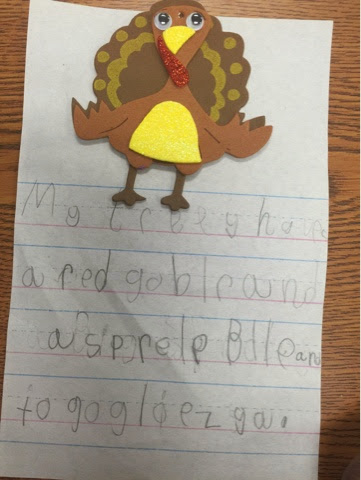 My treey have
a red goblr and
a sprelp Blle an
to goglo ez ga.